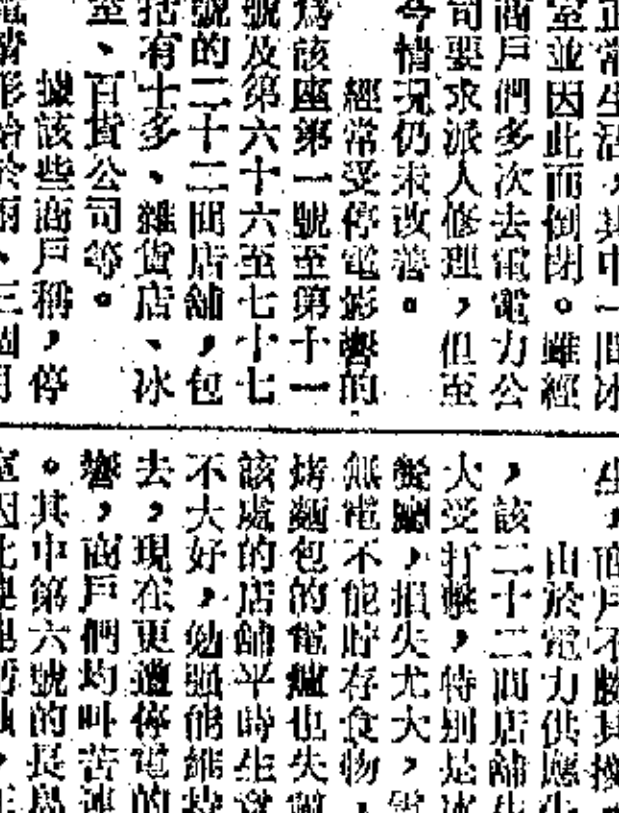 正常生活,其中一間冰
室並因此而倒閉。雖經
商戶們多次去電電力公
司要求派人修理,但至
今情況仍未改善。
經常受停電影響的
爲該座第一號至第十一
號及第六十六至七十七
號的二十二間店舖,包
括有士多、雜貨店、冰
室、百貨公司等。
據該些商戶稱,停
電情形始於兩、三個月
生,商戶不勝其擾
由於電力供應
,該二十二間店舖生
大受打擊,特別是冰
餐廳,損失尤大,
無電不能貯存食物,
烤麵包的電爐也失
該處的店舖平時生意
不大好,勉强能維持
去,現在更遭停電的
響,商戶們均叫苦連
。其中第六號的長島
室因此